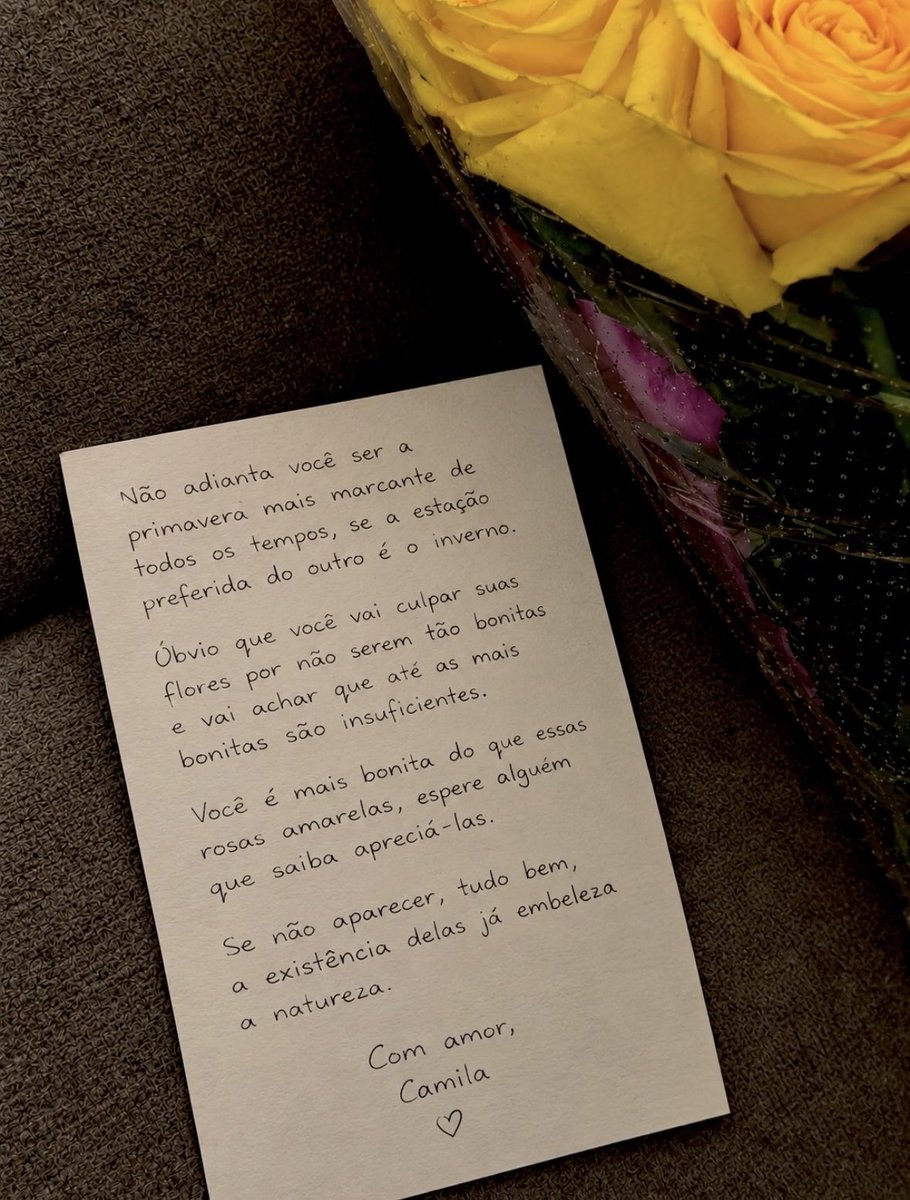 Não adianta você ser a
primavera mais marcante de
todos os tempos, se a estação
preferida do outro é o inverno.
Óbvio que você vai culpar suas
flores por não serem tão bonitas
e vai achar que até as mais
bonitas são insuficientes.
Você é mais bonita do que essas
rosas amarelas, espere alguém
que saiba apreciá-las.
Se não aparecer, tudo bem,
a existência delas já embeleza
a natureza.
Com amor,
Camila